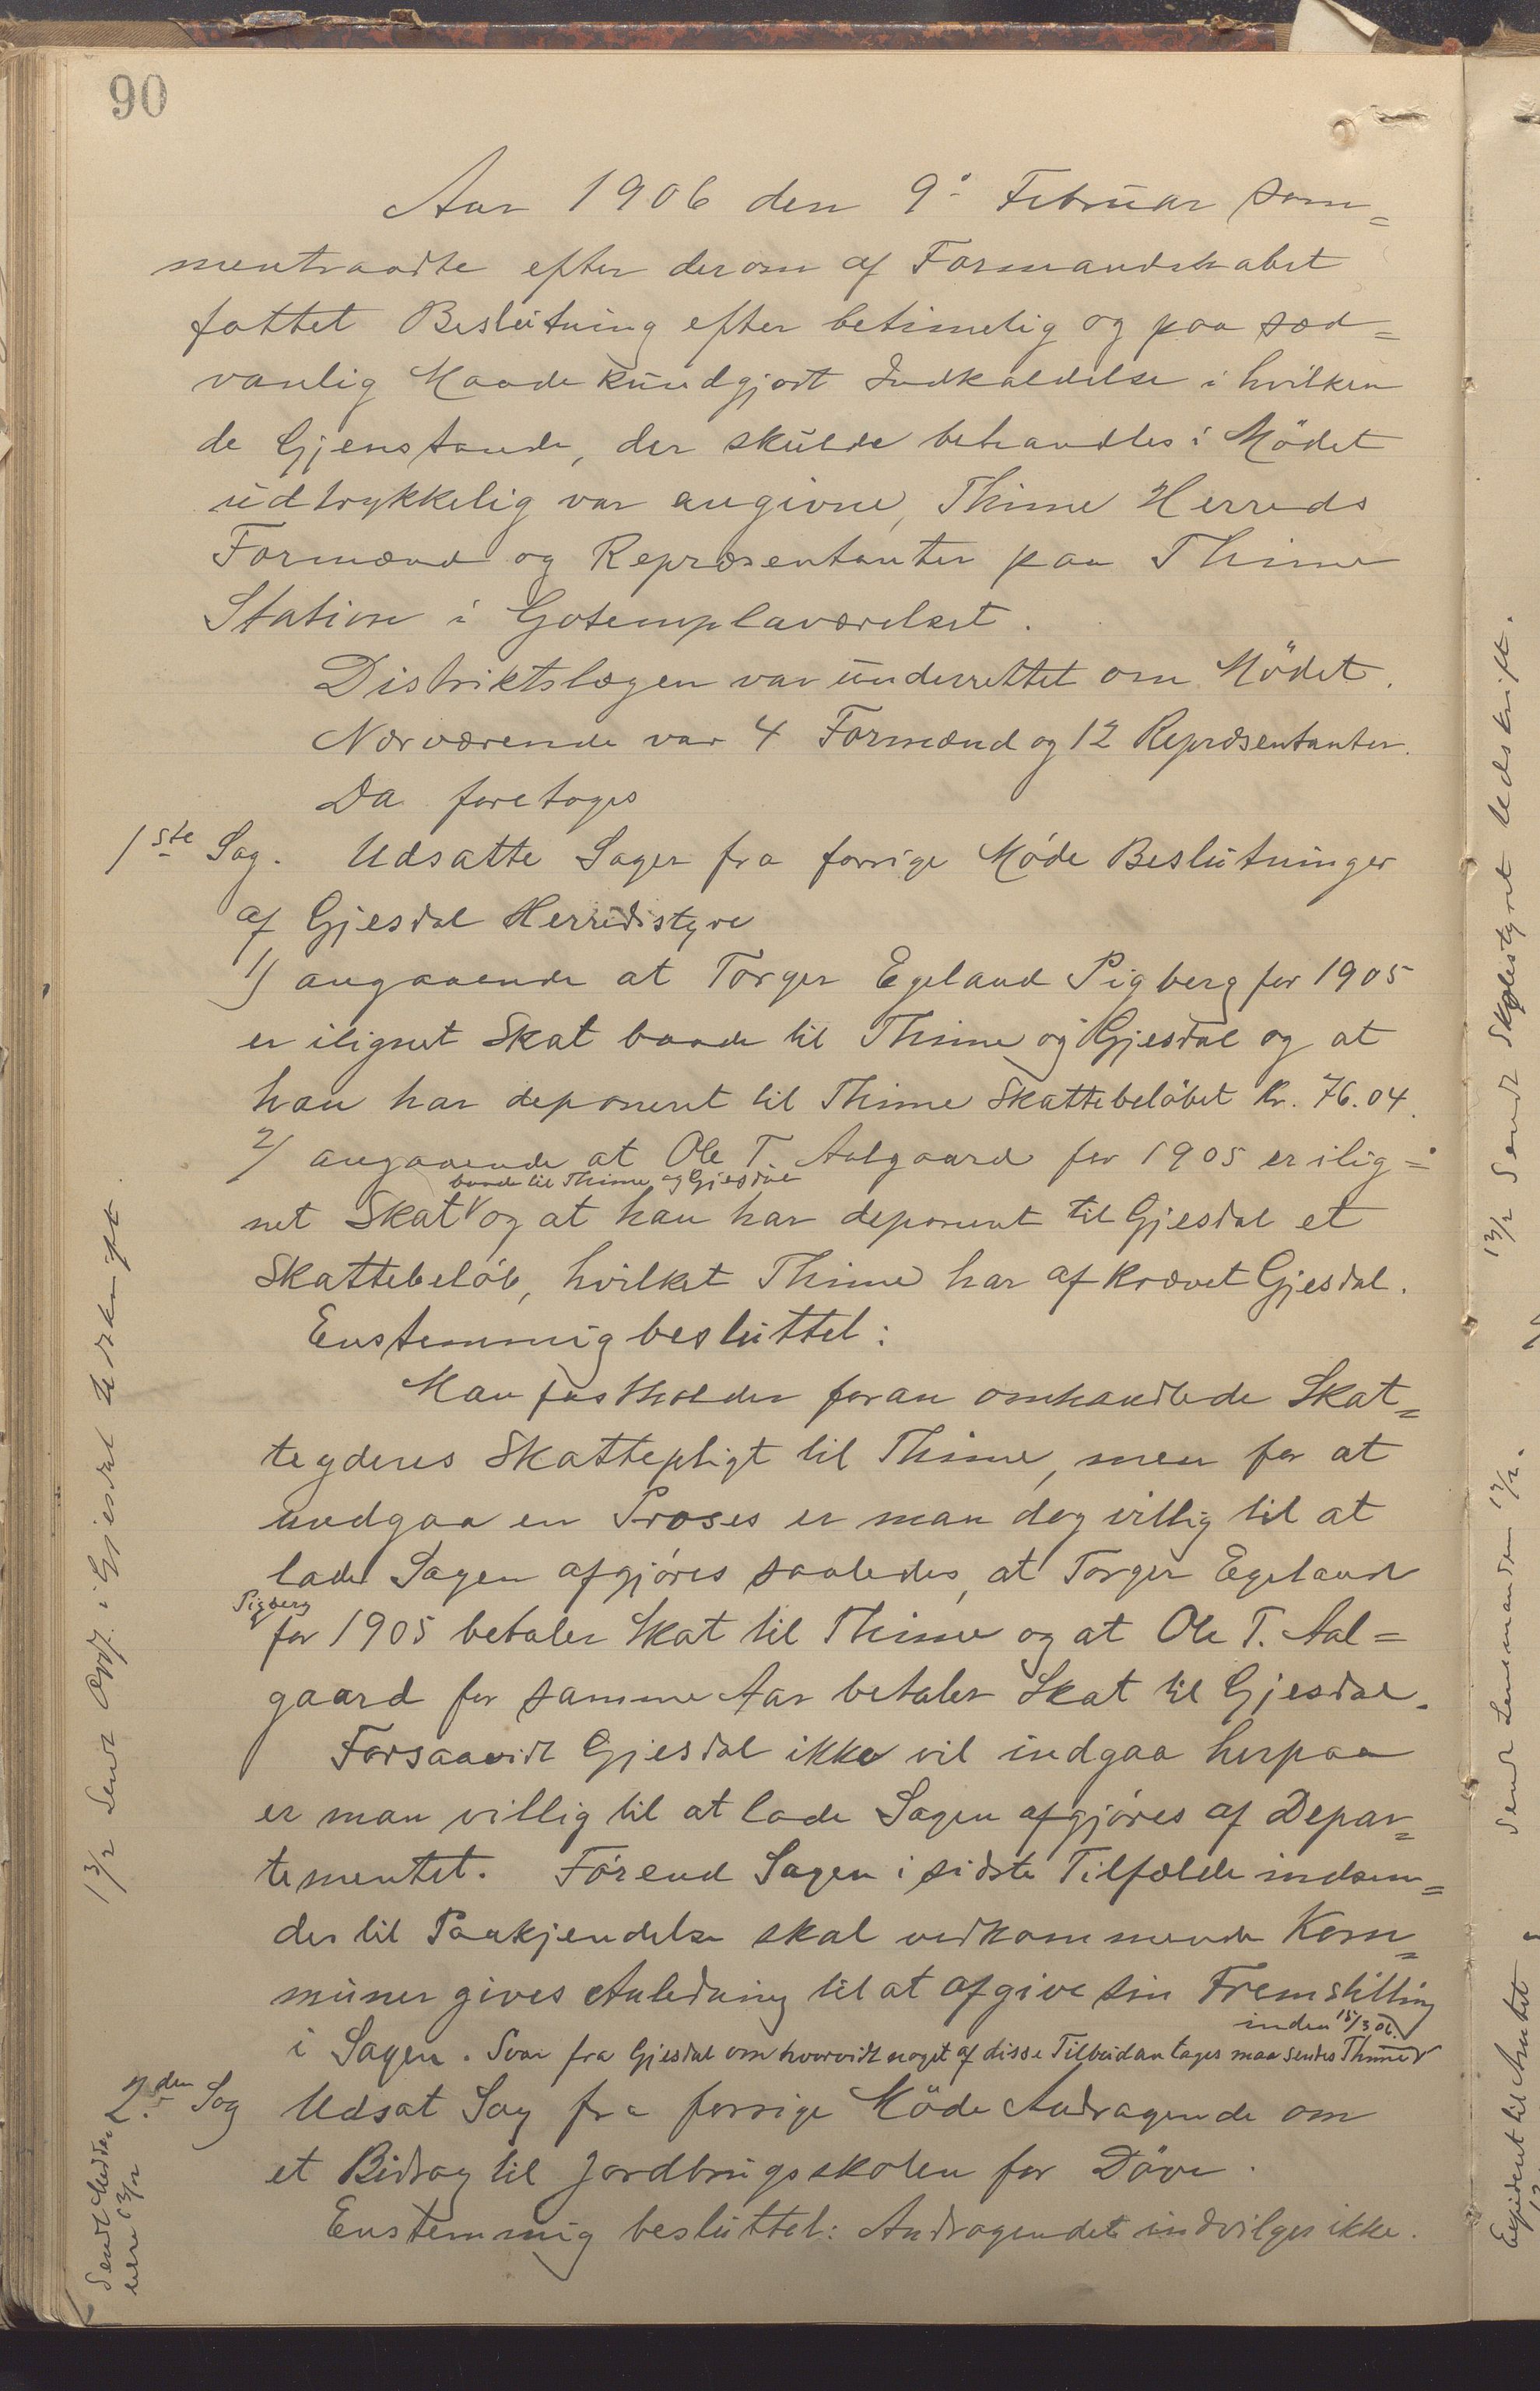 90
Aar 1906 den 9de Februar sam=
mentraadte efter derom af Formandskabet
fattet Beslutning efter betimelig og paa sæd=
vanlig Maade kundgjort Indkaldelse i hvilken
de Gjenstande, der skulde behandles i Mödet
udtrykkelig var angivne, Thime Herreds
Formænd og Repræsentanter paa Thime
Station i Gotemplaværelset.
Distriktslægen var underrettet om Mödet.
Nærværende var 4 Formænd og 12 Repræsentanter.
Da foretoges
1ste Sag. Udsatte Sager fra forrige Möde Beslutninger
af Gjesdal Herredsstyre
1) angaaende at Torger Egeland Pigberg for 1905
er ilignet Skat baade til Thime og Gjesdal og at
han har deponert til Thime Skattebelöbet Kr. 76.04.
2/ angaaende at Ole T. Aalgaard for 1905 er ilig=
baade til Thime og Gjesdal
net Skat og at han har deponert til Gjesdal et
Skattebelöb, hvilket Thime har afkrævet Gjesdal.
Enstemmig besluttet:
Man fastholder foran omhandlede Skat=
teyderes Skattepligt til Thime, men for at
undgaa en Proses er man dog villig til at
lade Sagen afgjöres saaledes, at Torger Egeland
Pigberg
for 1905 betaler Skat til Thime og at Ole T. Aal=
gaard for samme Aar betaler Skat til Gjesdal.
Forsaavidt Gjesdal ikke vil indgaa herpaa
er man villig til at lade Sagen afgjöres af Depar=
tementet. Förend Sagen i sidste Tilfælde indsen=
des til Paakjendelse skal vedkommende Kom=
muner gives Anledning til at afgive sin Fremstilling
inden 15/3 06.
i Sagen. Svar fra Gjesdal om hvorvidt noget af disse Tilbud antages maa sendes Thime
2.den Sag Udsat Sag fra forrige Möde Andragende om
et Bidrag til Jordbrugsskolen for Döve.
Enstemmig besluttet: Andragendet indvilges ikke.
13/2 Sendt Ordf. i Gjesdal Udskrift.
Sendt
13/2
13/2 Sendt Skolestyret Udskrift.
Sendt Lensmanden 17/2.
Expedert til Amtet